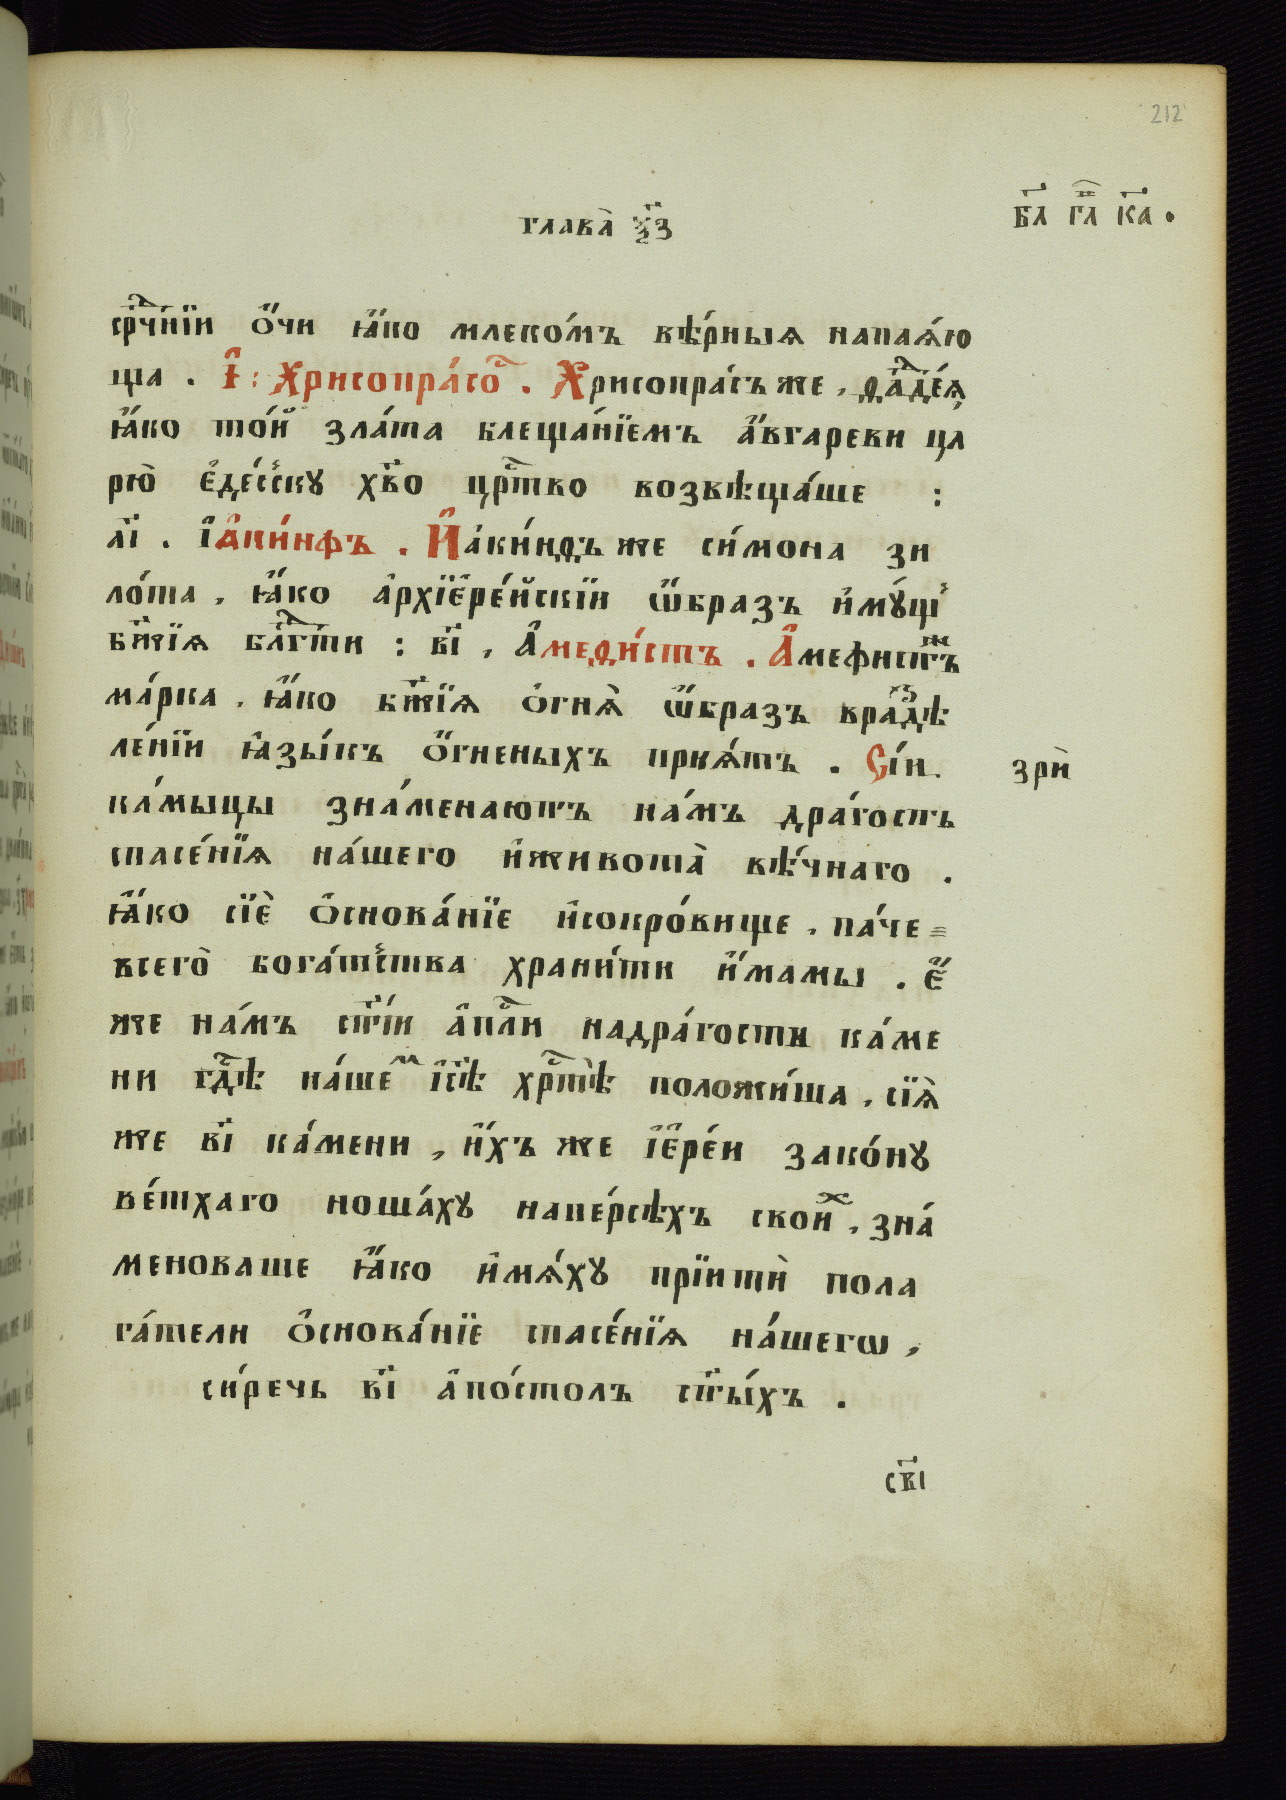 212
глава̀ ѯ҃з
бл҃ гл҃ ка҃ .
срⷣчнїи ѻ҆́чи ꙗ҆́ко млеко́мъ вѣ́рныѧ напаѧ́ю
ща . І҃ : Хрисопра́соⷭ҇ . Хрисопра́съ же , ѳаⷣде́ѧ
ꙗ҆́ко то́й зла́та блеща́нїемъ а҆́вгареви ца
рю̀ є҆де́сскꙋ хв҃о црⷭ҇тво возвѣща́ше :
аі҃ . І҆а҆ки́нфъ . И҆аки́нѳъ же си́мона зи
ло́та , ꙗ҆́ко а҆рхїєре́йскїи ѡ҆́бразъ и҆мꙋ́щ
бж҃їѧ блгⷣти : ві҃ , А҆меѳи́стъ . А҆мефистъ
ма́рка . ꙗ҆́ко бж҃їѧ ѻ҆гнѧ̀ ѡ҆́бразъ враздѣ
ле́нїи ꙗ҆зы́къ ѻ҆́гненыхъприѧ́тъ . Сі́и
зрѝ
ка́мыцы зна́менаютъ на́мъ драгость
спасе́нїѧ на́шего и҆живота̀ вѣ́чнаго .
ꙗ҆́ко сїѐ ѻ҆снова́нїе и҆сокро́вище , па́че
всего̀ бога́тства храни́ти и҆́мамы . є҆́
же на́мъ ст҃і́и а҆пⷭ҇ли надра́гости ка́ме
ни гдⷭ҇ѣ на́шеⷨ і҆с҃ѣ хрⷭ҇тѣ положи́ша , сїѧ̀
же ві҃ ка́мени , и҆́хъ же і҆єре́и зако́нꙋ
ве́тхаго ноша́хꙋ напе́рсѣхъ своиⷯ , зна́
меноваше ꙗ҆́ко и҆мѧ́хꙋ прїитѝ пола
га́тели ѻ҆снова́нїе спасе́нїѧ на́шегѡ ,
си́речь ві҃ а҆по́столъ ст҃ы́хъ .
св҃і